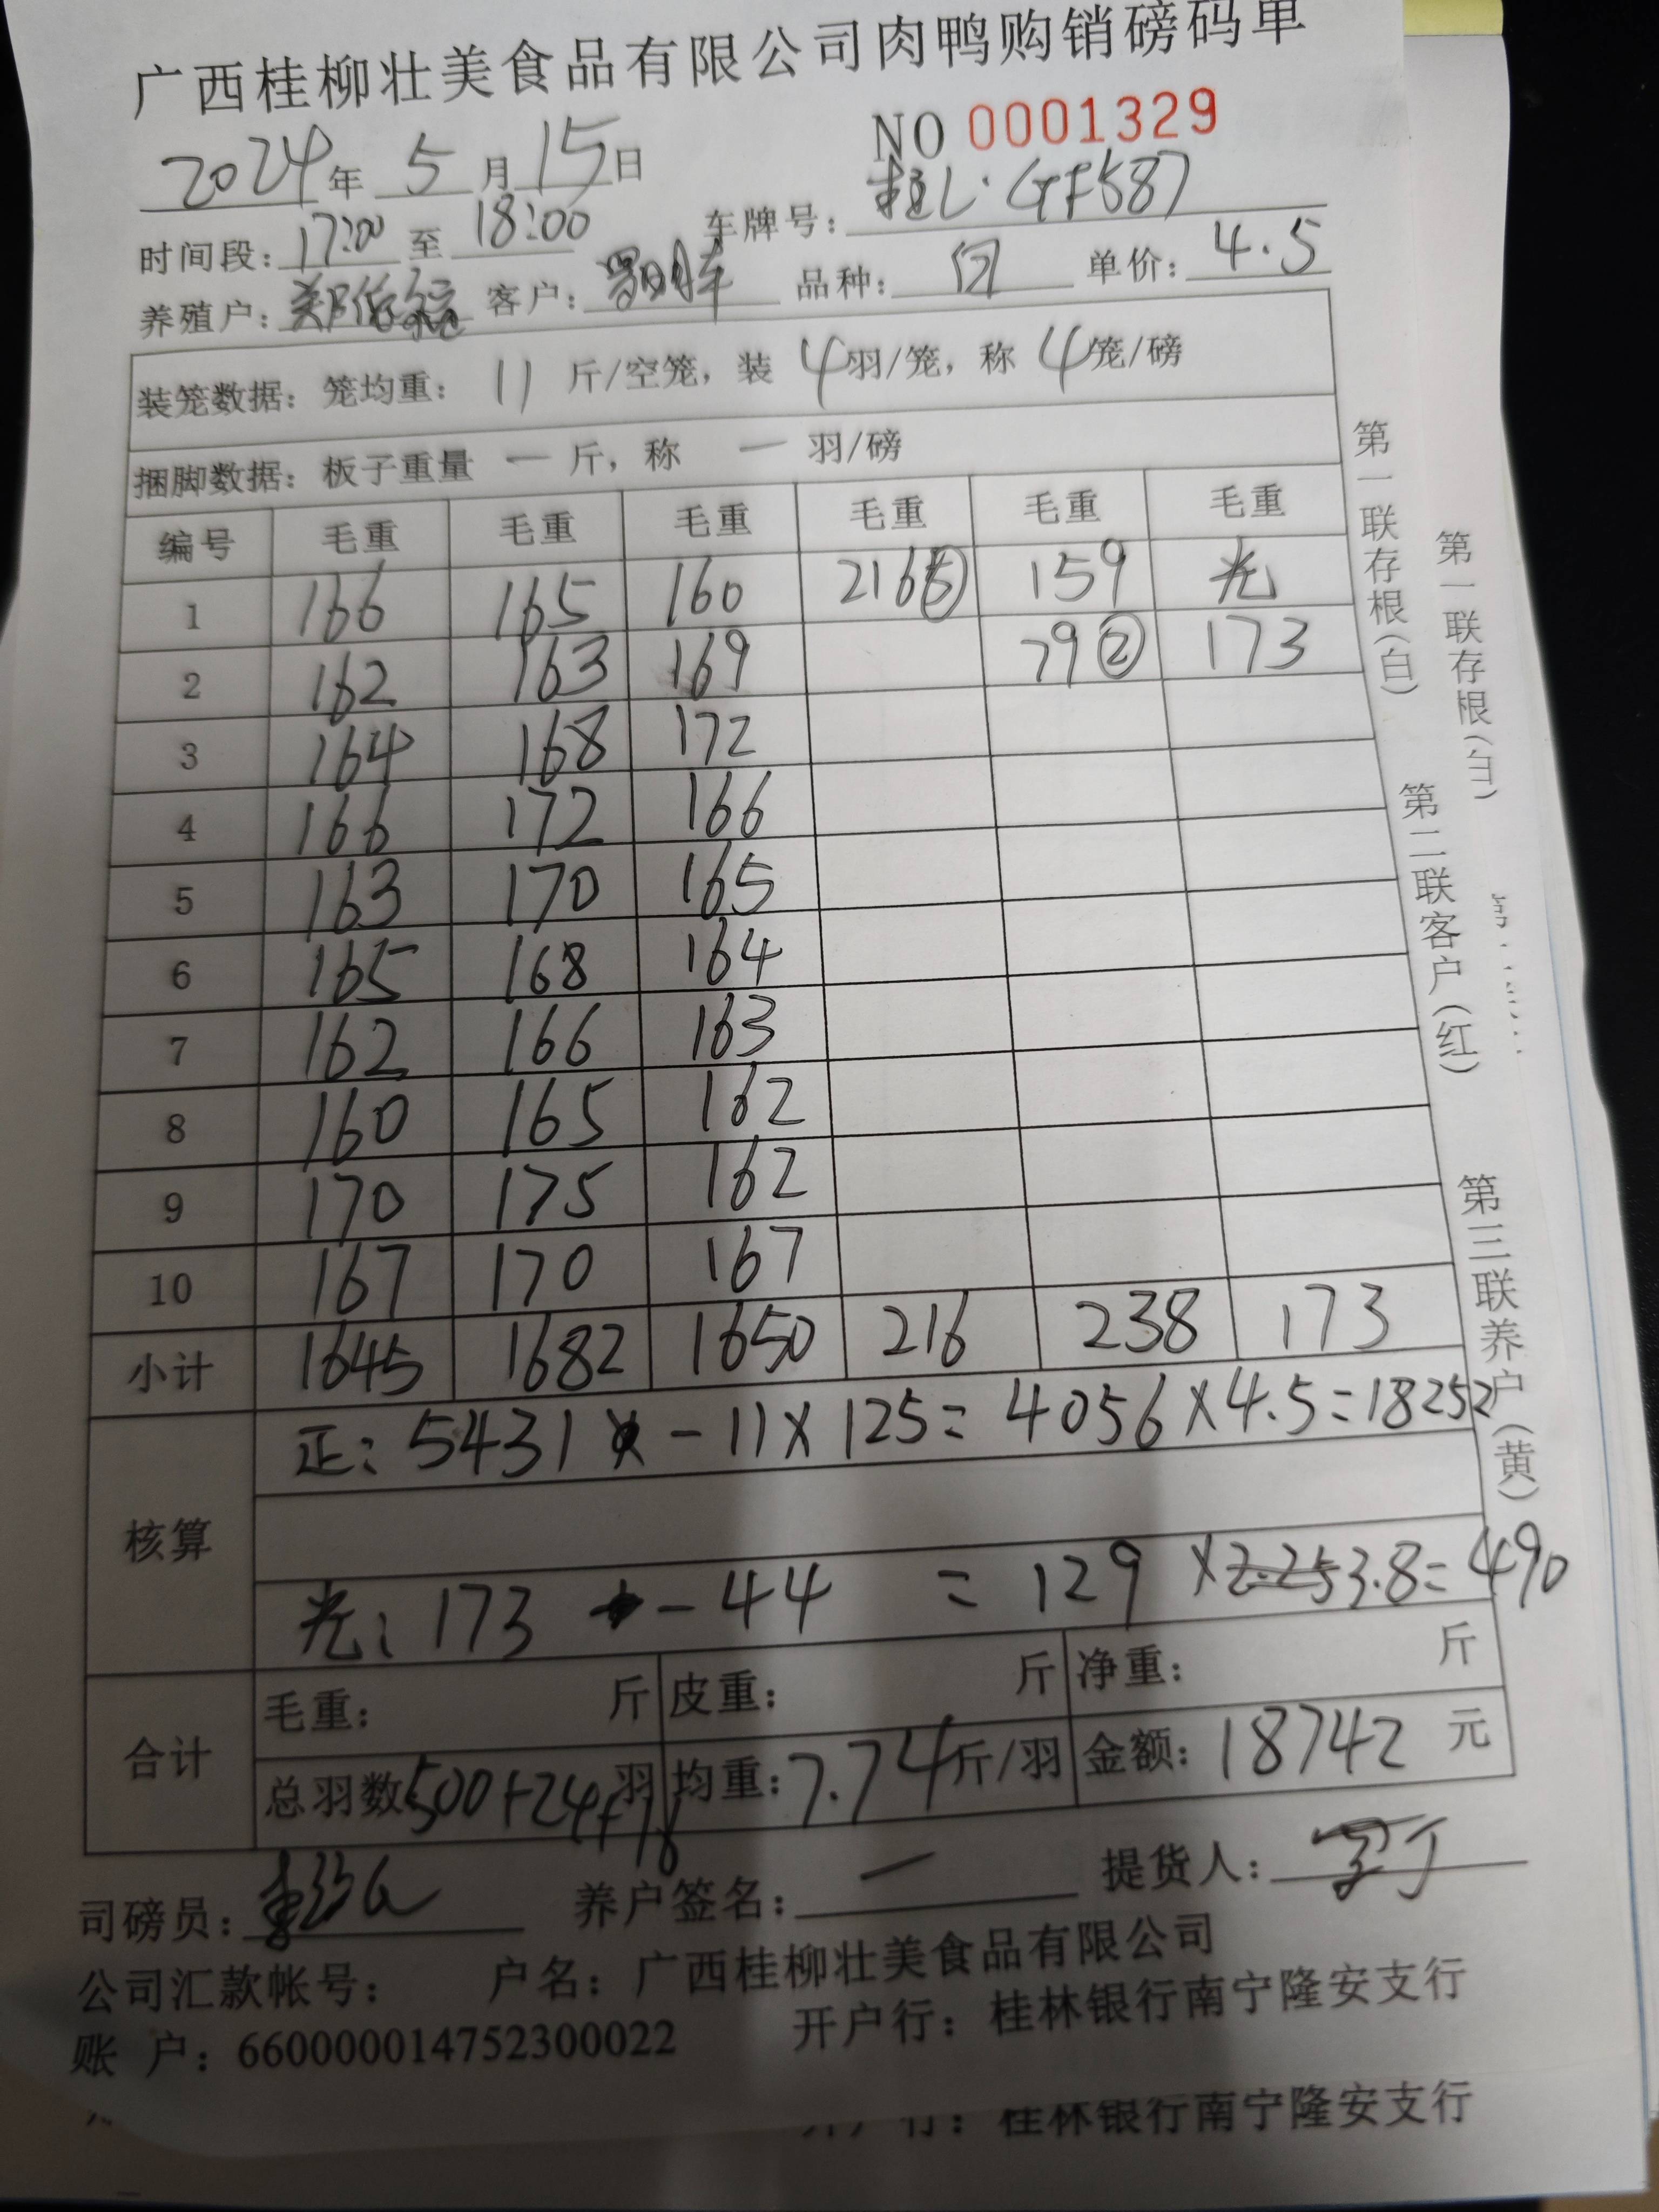 广西桂柳壮美食品有限公司肉鸭购销磅码单
NO 0001329
2024年 5 月 15日
时间段: 17:00 至 18:00 车牌号: 桂L·GF587
养殖户: 客户: 品种: 白 单价: 4.5
装笼数据: 笼均重: 11 斤/空笼, 装 4羽/笼, 称 4笼/磅
捆脚数据: 板子重量 一 斤, 称 一 羽/磅
编号 毛重 毛重 毛重 毛重 毛重 毛重
1 166 165 160 216⑤ 159 光
2 162 163 169 79② 173
3 164 168 172
4 166 172 166
5 163 170 165
6 165 168 164
7 162 166 163
8 160 165 162
9 170 175 162
10 167 170 167
小计 1645 1682 1650 216 238 173
核算 正: 5431 - 11 X 125 = 4056 X 4.5 = 18252
光: 173 - 44 = 129 X 3.8 = 490
合计 毛重: 斤 皮重: 斤 净重: 斤
总羽数500+24+16羽 均重: 7.74斤/羽 金额: 18742 元
司磅员: 养户签名: 一 提货人:
公司汇款帐号: 户名: 广西桂柳壮美食品有限公司
账 户: 660000014752300022 开户行: 桂林银行南宁隆安支行
桂林银行南宁隆安支行
第一联存根(白) 第二联客户(红) 第三联养户(黄)
第一联存根(白)